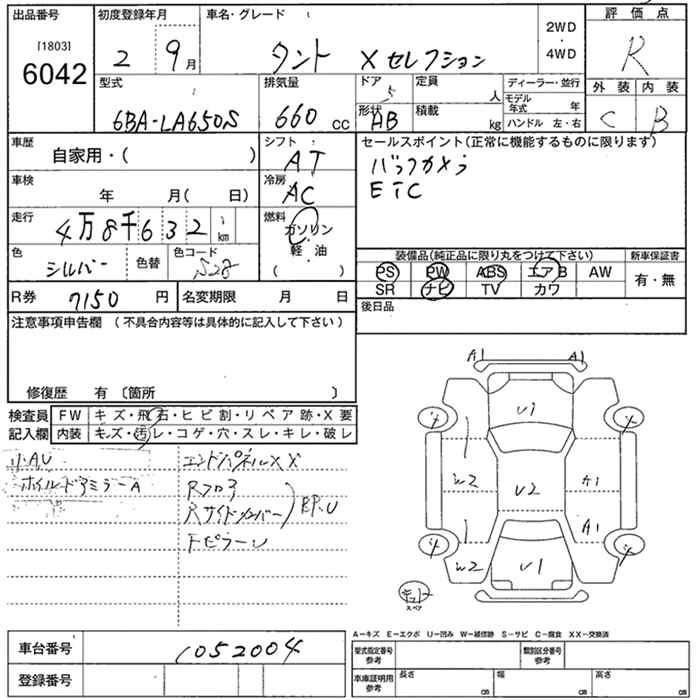 出品番号
[1803]
6042
初度登録年月
2 9月
車名・グレード
タント Xセレクション
2WD
・
4WD
評価点
R
外装 内装
C B
型式
6BA-LA650S
排気量
660 cc
ドア
5
形状
AB
定員
人
積載
kg
ディーラー・並行
モデル年式 年
ハンドル 左・右
車歴
自家用・( )
シフト
AT
セールスポイント(正常に機能するものに限ります)
バックカメラ
ETC
車検
年 月( 日)
冷房
AC
走行
4万8千632 km
燃料
ガソリン
軽・油
( )
色
シルバー
色替
色コード
S28
装備品(純正品に限り丸をつけて下さい)
PS PW ABS エアB AW
SR ナビ TV カワ
新車保証書
有・無
R券 7150 円
名変期限 月 日
後日品
注意事項申告欄 (不具合内容等は具体的に記入して下さい)
修復歴 有 〔箇所 〕
検査員記入欄
FW キズ・飛石・ヒビ割・リペア跡・X要
内装 キズ・汚レ・コゲ・穴・スレ・キレ・破レ
小AU
ホイルドアミラーA
エンドパネルXX
Rフロア
Rサイドメンバー
BP.U
Fピラー
A1 A1
U1
W2 U2 A1
A1
W2 U1
スペア
A-キズ E-エクボ U-凹み W-補修跡 S-サビ C-腐食 XX-交換済
車台番号 1052004
登録番号
型式指定番号 参考
類別区分番号 参考
車庫証明用 参考
長さ cm
幅 cm
高さ cm